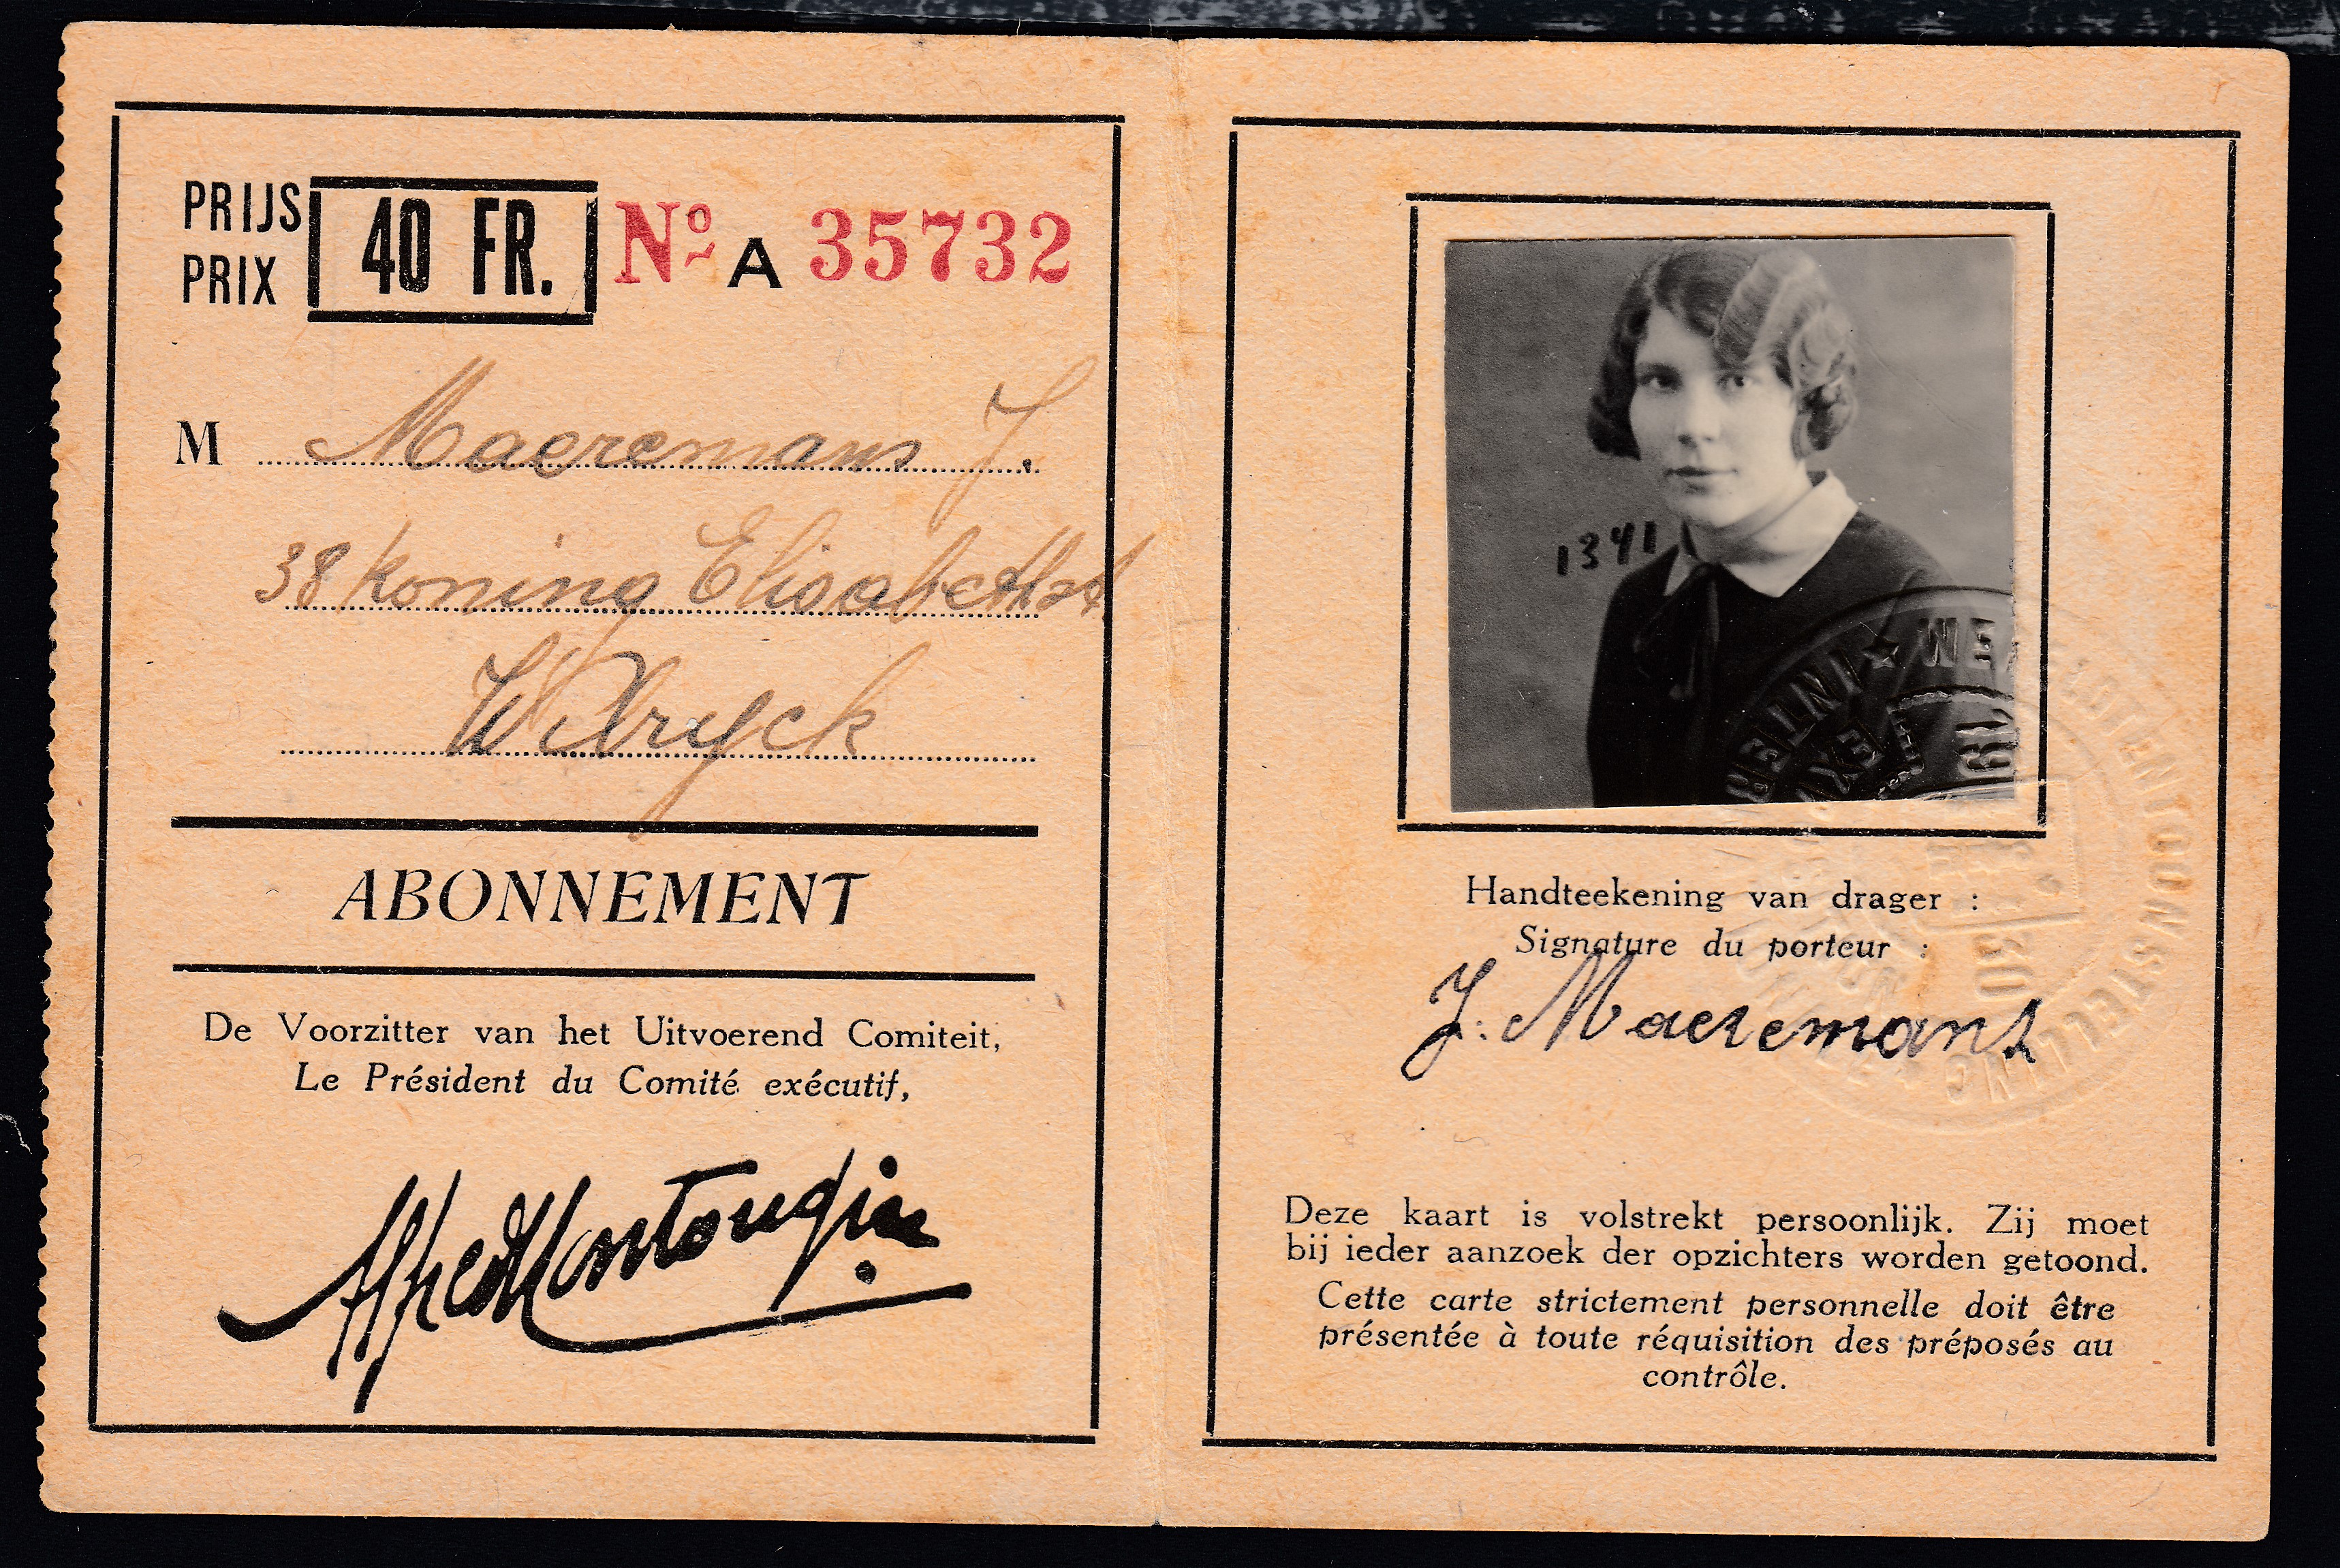 PRIJS
PRIX
40 FR.
Nº A 35732
M Maeremans J.
38 Koning Elisabethst
Wilryck
ABONNEMENT
De Voorzitter van het Uitvoerend Comiteit,
Le Président du Comité exécutif,
Alfred Martougin
1341
Handteekening van drager :
Signature du porteur :
J. Maeremans
Deze kaart is volstrekt persoonlijk. Zij moet
bij ieder aanzoek der opzichters worden getoond.
Cette carte strictement personnelle doit être
présentée à toute réquisition des préposés au
contrôle.
19
30